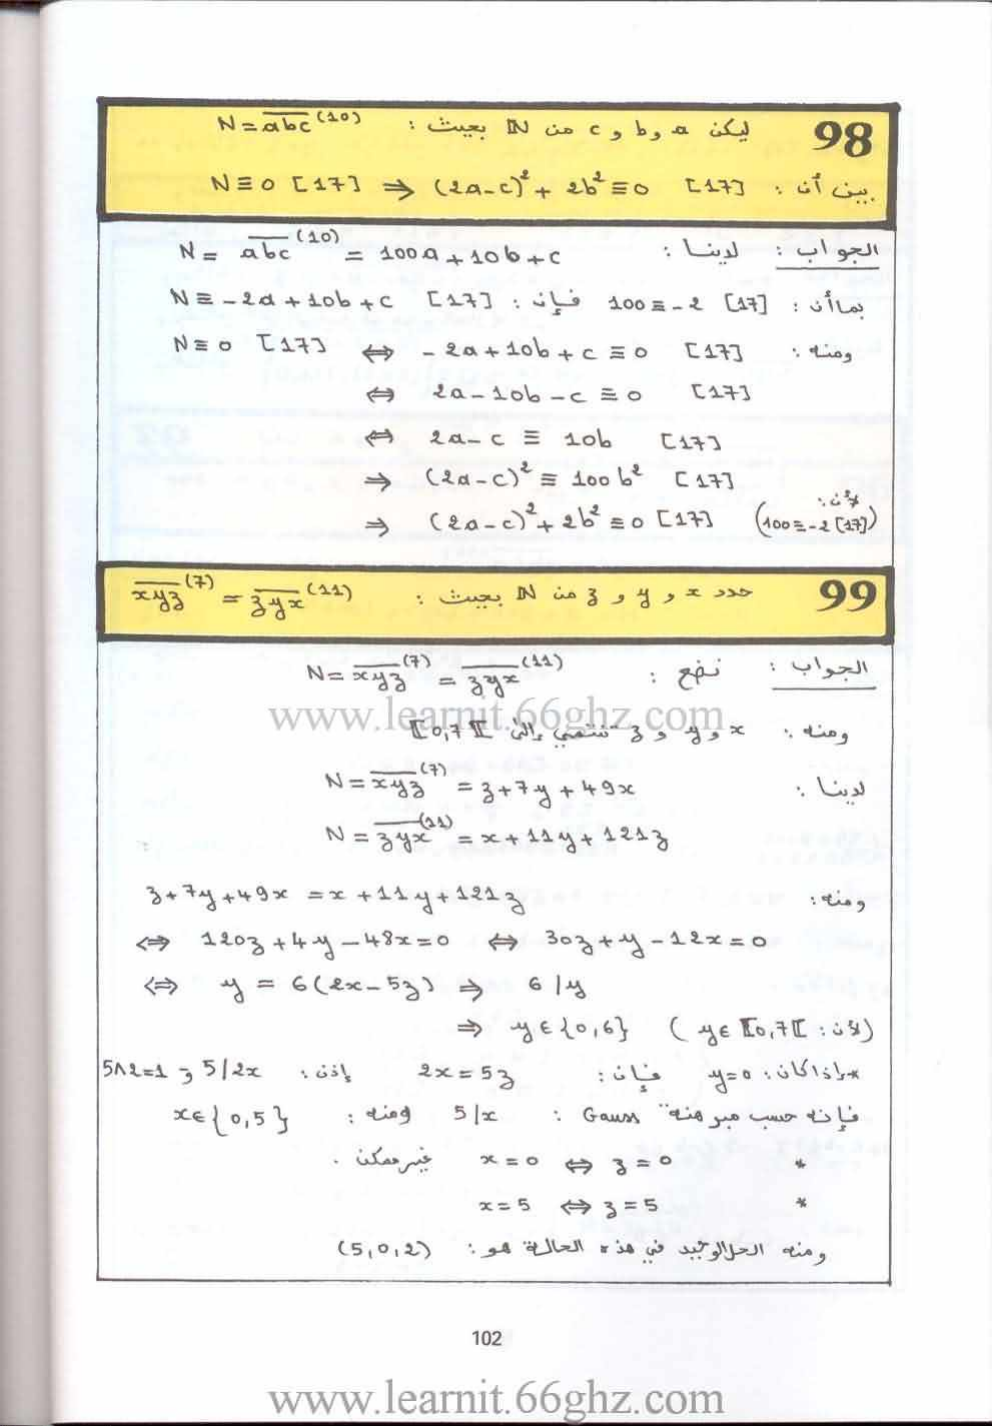 98 ليكن a و b و c من ℕ بحيث : N = \overline{abc}^{(10)}
بين أن : N ≡ 0 [17] ⇒ (2a-c)² + 2b² ≡ 0 [17]
الجواب : لدينا : N = \overline{abc}^{(10)} = 100a + 10b + c
بما أن : 100 ≡ -2 [17] فإن : N ≡ -2a + 10b + c [17]
ومنه : N ≡ 0 [17] ⇔ -2a + 10b + c ≡ 0 [17]
⇔ 2a - 10b - c ≡ 0 [17]
⇔ 2a - c ≡ 10b [17]
⇒ (2a-c)² ≡ 100b² [17]
⇒ (2a-c)² + 2b² ≡ 0 [17] (لأن : 100 ≡ -2 [17])
99 حدد x و y و z من ℕ بحيث : \overline{xyz}^{(7)} = \overline{zyx}^{(11)}
الجواب : نضع : N = \overline{xyz}^{(7)} = \overline{zyx}^{(11)}
www.learnit.66ghz.com
ومنه : x و y و z تنتمي إلى ⟦0,7⟦
لدينا : N = \overline{xyz}^{(7)} = z + 7y + 49x
N = \overline{zyx}^{(11)} = x + 11y + 121z
ومنه : z + 7y + 49x = x + 11y + 121z
⇔ 120z + 4y - 48x = 0 ⇔ 30z + y - 12x = 0
⇔ y = 6(2x - 5z) ⇒ 6 / y
⇒ y ∈ {0,6} (لأن : y ∈ ⟦0,7⟦)
* إذا كان : y = 0 فإن : 2x = 5z إذن : 5/2x و 5∧2=1
فإنه حسب مبرهنة Gauss : 5/x ومنه : x ∈ {0,5}
* x = 0 ⇔ z = 0 غير ممكن .
* x = 5 ⇔ z = 5
ومنه الحل الوحيد في هذه الحالة هو : (5,0,2)
102
www.learnit.66ghz.com